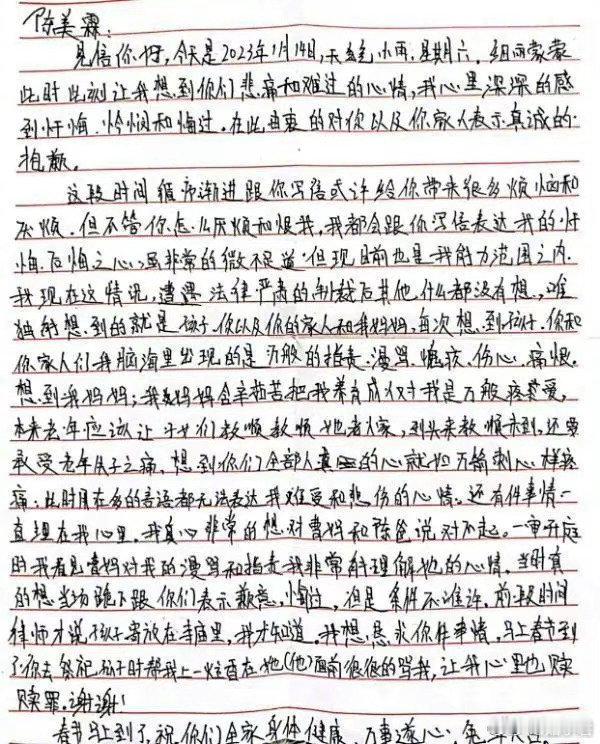 陈美霖:
见信你好,今天是2023年1月14日,天气小雨,星期六,细雨蒙蒙
此时此刻让我想到你们悲痛和难过的心情,我心里深深的感
到忏悔、怜悯和悔过。在此由衷的对你以及你家人表示真诚的
抱歉。
这段时间循序渐进跟你写信或许给你带来很多烦恼和
厌烦,但不管你怎么厌烦和恨我,我都会跟你写信表达我的忏
悔、后悔之心,虽非常的微不足道,但现目前也是我能力范围之内
我现在这情况,遭遇法律严肃的制裁后其他什么都没有想,唯
独能想到的就是孩子、你以及你的家人和我妈妈,每次想到孩子、你和
你家人们我脑海里出现的是万般的指责、漫骂、愧疚、伤心、痛恨。
想到我妈妈;我妈妈含辛茹苦把我养育成仅对我是万般疼爱,
本来老年应该让子女们孝顺孝顺她老人家,到头来孝顺未到,还要
承受老年失子之痛,想到你们全部人真的心就如万箭刺心一样疼
痛;此时用在多的言语都无法表达我难受和悲伤的心情。还有件事情一
直埋在我心里,我真心非常的想对曹妈和陈爸说对不起。一审开庭
时我看见曹妈对我的漫骂和指责我非常能理解她的心情,当时真
的想当场跪下跟你们表示歉意、悔过,但是条件不准许。前段时间
律师才说孩子寄放在寺庙里,我才知道,我想恳求你件事情,马上春节到
了你去祭祀孩子时帮我上一炷香在她(他)面前很很的骂我,让我心里也赎
赎罪。谢谢!
春节马上到了,祝你们全家身体健康、万事遂心、